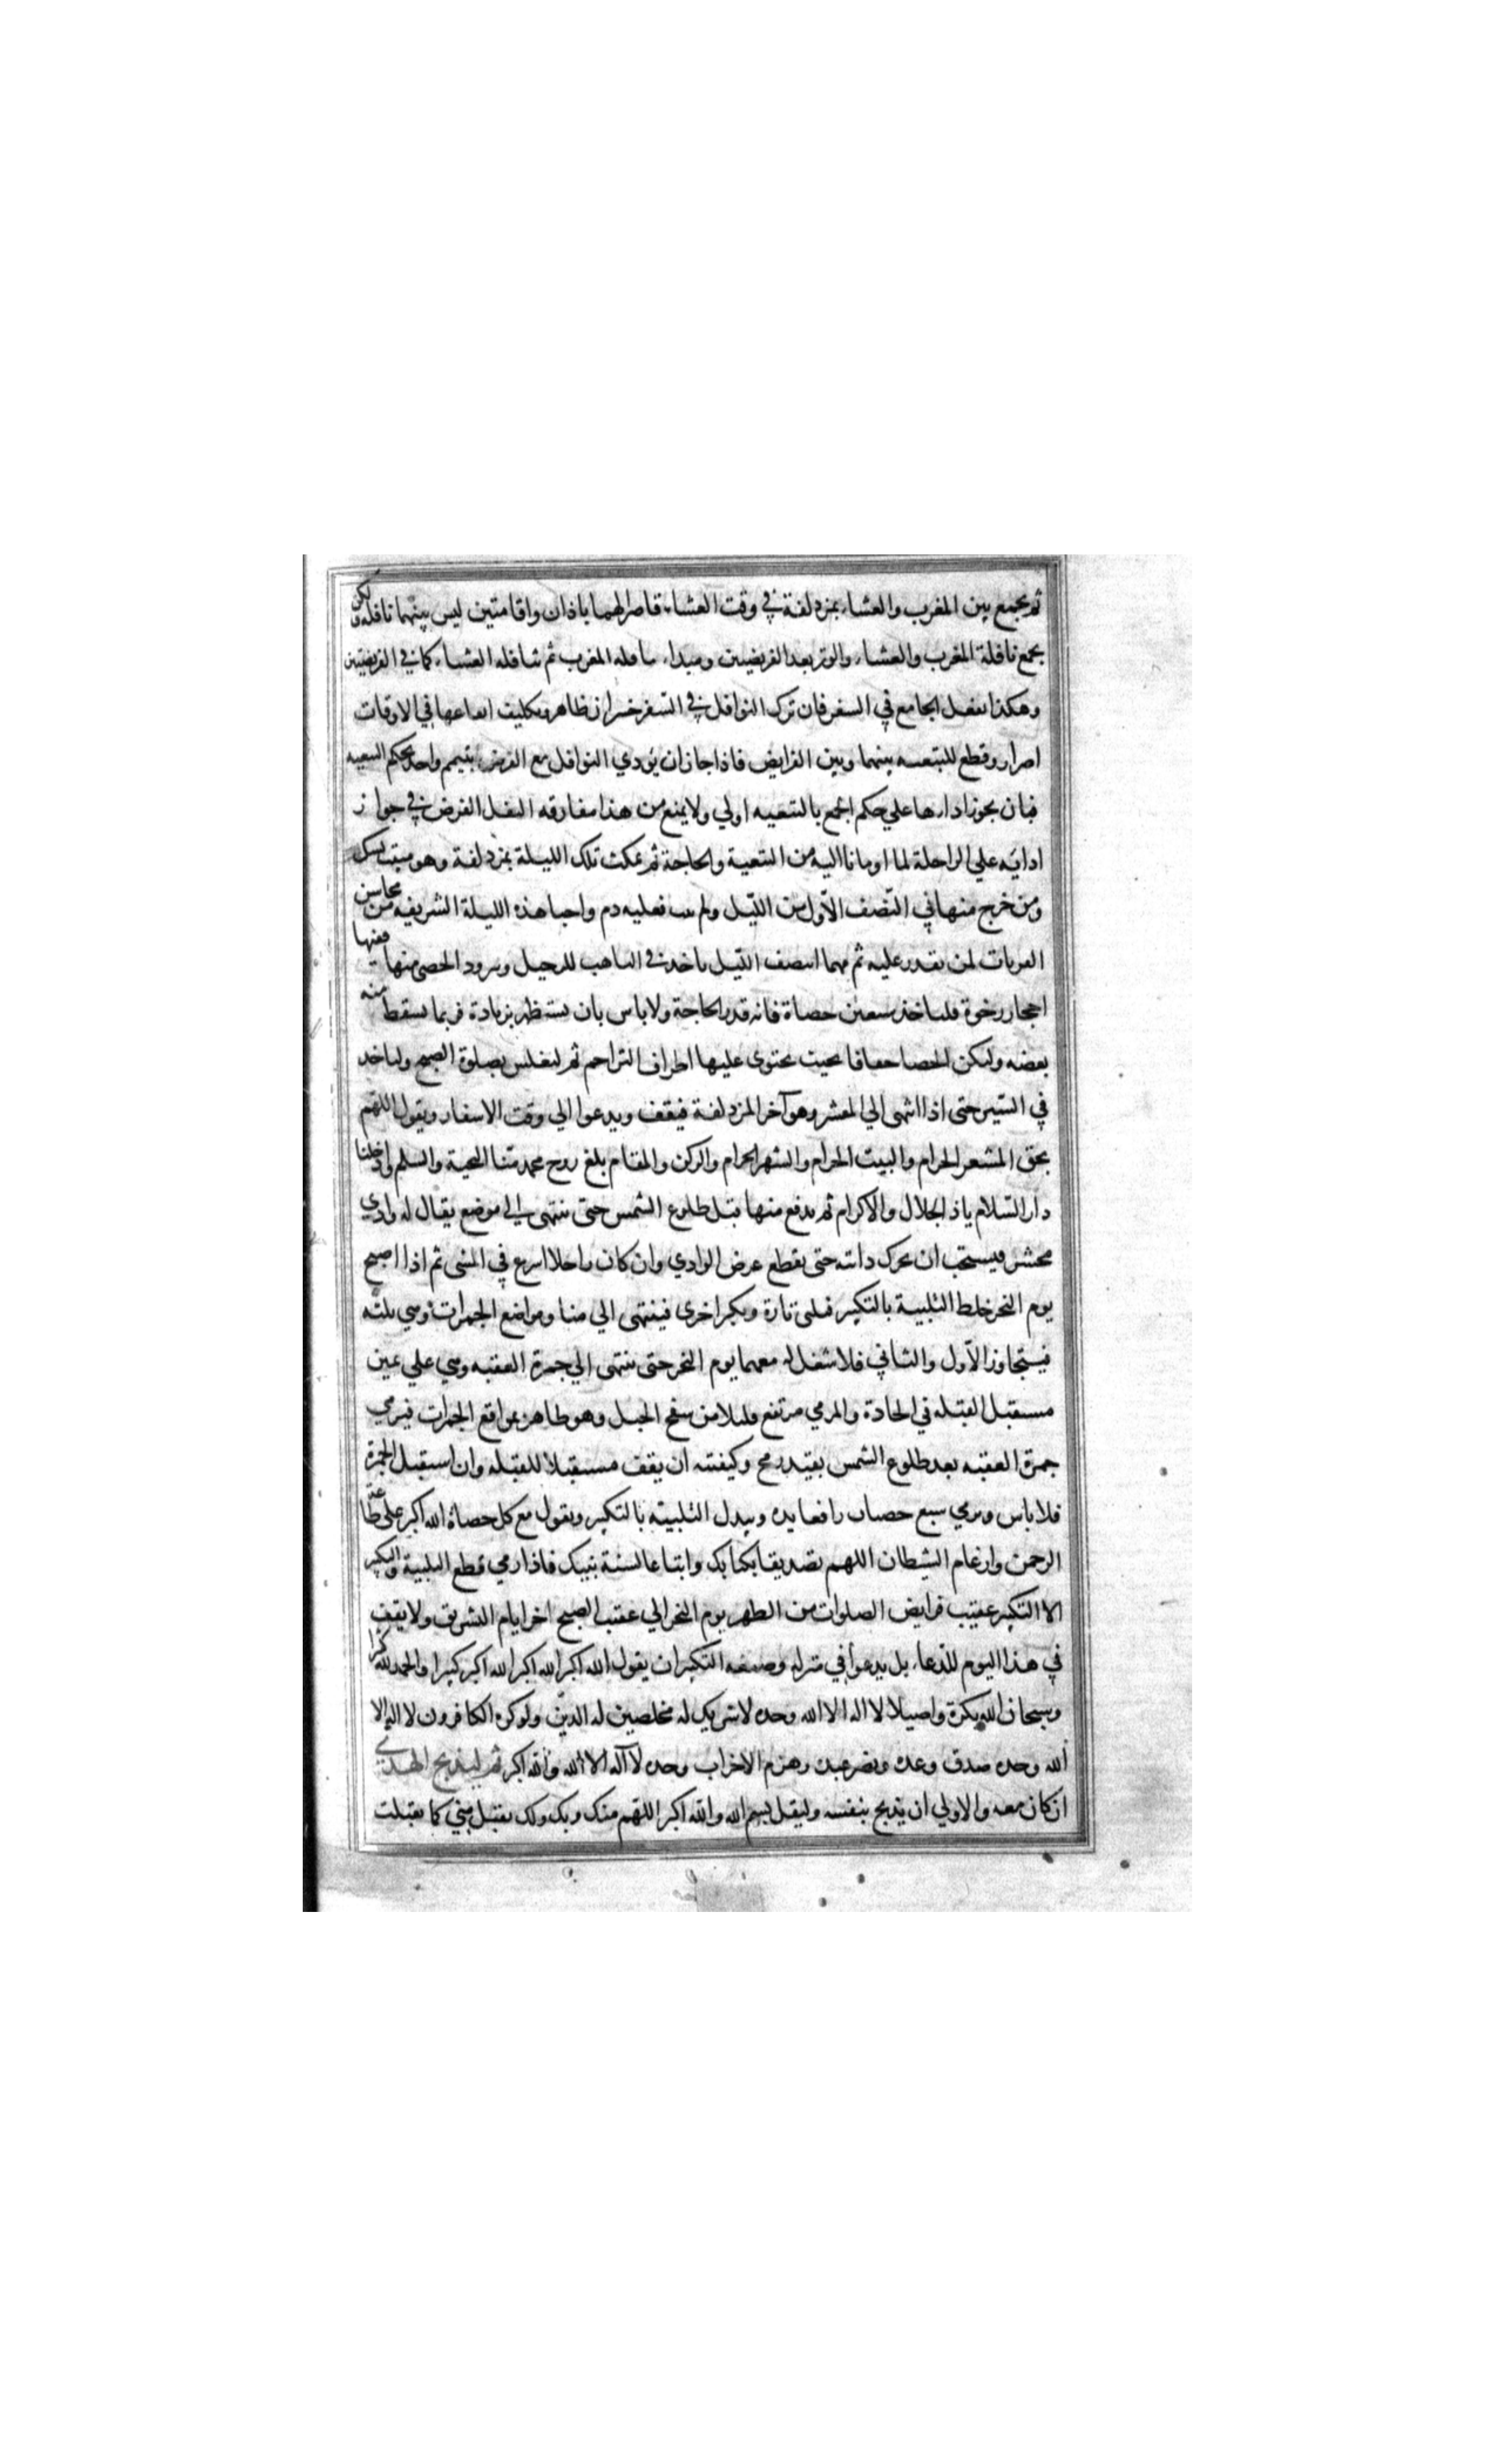 ثم يجمع بين المغرب والعشاء بمزدلفة في وقت العشاء قاصرا لهما باذان واقامتين ليس بينهما نافله ولكن
يجمع نافلة المغرب والعشاء والوتر بعد الفريضتين ويبداء بنافله المغرب ثم بنافله العشاء كما في الفريضتين
وهكذا يفعل الجامع في السفر فان ترك النوافل في السفر خسران ظاهر وتكليف ايقاعها في الاوقات
اضرار وقطع للتبعيه بينهما وبين الفرايض فاذا جاز ان يؤدي النوافل مع الفرايض بتيمم واحد بحكم التبعيه
فبان يجوز اداءها علي حكم الجمع بالتبعيه اولي ولا يمنع من هذا مفارقه النفل الفرض في جواز
ادايه علي الراحلة لما اومانا اليه من التبعية والحاجة ثم يمكث تلك الليلة بمزدلفة وهو مبيت نسك
ومن خرج منها في النصف الاول من الليل ولم يبت فعليه دم واحيا هذه الليلة الشريفه من محاسن
القربات لمن يقدر عليه ثم مهما انتصف الليل ياخذ في التاهب للرحيل ويزود الحصى منها ففيها
احجار رخوة فلياخذ سبعين حصاة فانه قدر الحاجة ولا باس بان يستظهر بزيادة فربما يسقط منه
بعضه وليكن الحصا خفافا بحيث يحتوى عليها اطراف البراجم ثم ليغلس بصلوة الصبح ولياخذ
في السير حتى اذا انتهى الي المعشر وهو آخر المزدلفة فيقف ويدعوا الي وقت الاسفار ويقول اللهم
بحق المشعر الحرام والبيت الحرام والشهر الحرام والركن والمقام بلغ روح محمد منا التحية والسلم وادخلنا
دار السلام يا ذا الجلال والاكرام ثم يدفع منها قبل طلوع الشمس حتى ينتهى الي موضع يقال له وادي
محسر فيستحب ان يحرك دابته حتى يقطع عرض الوادي وان كان راجلا اسرع في المشى ثم اذا اصبح
يوم النحر خلط التلبية بالتكبير فيلبى تارة ويكبر اخرى فينتهى الي منا ومواضع الجمرات وهي ثلثه
فيتجاوز الاول والثاني فلا شغل له معهما يوم النحر حتى ينتهى الي جمرة العقبه وهي علي يمين
مستقبل القبله في الجادة والمرمي مرتفع قليلا من سفح الجبل وهو ظاهر بمواقع الجمرات فيرمي
جمرة العقبه بعد طلوع الشمس بقيد رمح وكيفيته ان يقف مستقبلا للقبله وان استقبل الجمرة
فلا باس ويرمي سبع حصيات رافعا يده ويبدل التلبيه بالتكبير ويقول مع كل حصاة الله اكبر على طاعة
الرحمن وارغام الشيطان اللهم تصديقا بكتابك واتباعا لسنة نبيك فاذا رمي قطع التلبية والتكبير
الا التكبير عقيب فرايض الصلوات من الظهر يوم النحر الي عقيب الصبح اخر ايام التشريق ولا يقف
في هذا اليوم للدعاء بل يدعوا في منزله وصفه التكبير ان يقول الله اكبر الله اكبر الله اكبر كبيرا والحمد لله كثيرا
وسبحان الله بكرة واصيلا لا اله الا الله وحده لا شريك له مخلصين له الدين ولو كره الكافرون لا اله الا
الله وحده صدق وعده ونصر عبده وهزم الاحزاب وحده لا اله الا الله والله اكبر ثم ليذبح الهدي
ان كان معه والاولي ان يذبح بنفسه وليقل بسم الله والله اكبر اللهم منك وبك ولك تقبل مني كما تقبلت